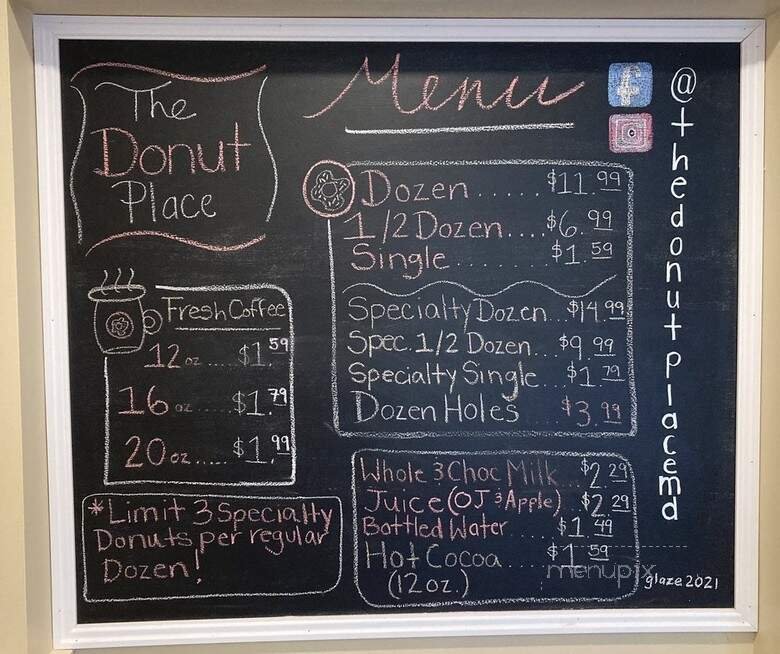 The
Donut
Place
Menu
f
@thedonutplacemd
Dozen......$11.99
1/2 Dozen....$6.99
Single........$1.59
Specialty Dozen...$14.99
Spec. 1/2 Dozen...$9.99
Specialty Single...$1.79
Dozen Holes $3.99
Fresh Coffee
12 oz.....$1.59
16 oz.....$1.79
20 oz.....$1.99
*Limit 3 Specialty
Donuts per regular
Dozen!
Whole & Choc Milk..$2.29
Juice (OJ & Apple) $2.29
Bottled Water $1.49
Hot Cocoa...$1.59
(12 oz.)
menupix
glaze 2021